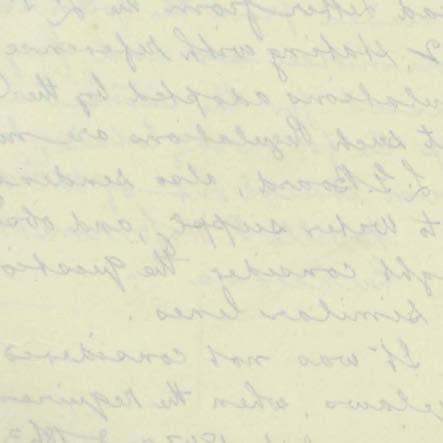 ead letter from the L
& stating with reference
ulations adopted by the
t such Regulations are
L. G. Board, also sendin
to water supply, and
ght consider the questio
similar lines.
It was not considered
elaws when the requirem